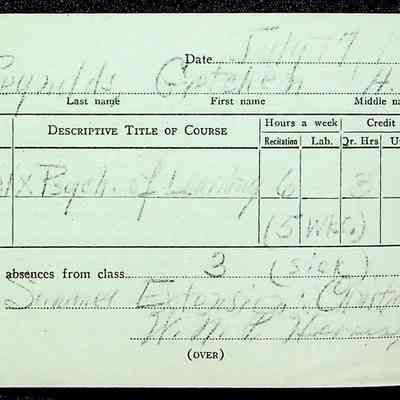 Date July 17
Reynolds Gretchen H.
Last name First name Middle na
DESCRIPTIVE TITLE OF COURSE Hours a week Credit
Recitation Lab. Qr. Hrs
X Psych. of Learning 6 3
(5 wks.)
absences from class 3 (sick)
Summer Extension:
W. M. P.
(OVER)